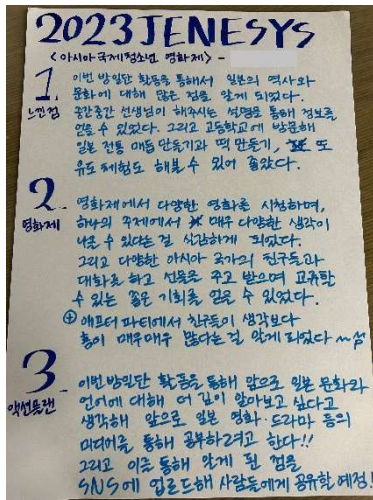 2023 JENESYS
<아시아 국제 청소년 영화제> -
1
느낀점
이번 방일단 활동을 통해서 일본의 역사와
문화에 대해 많은 점을 알게 되었다.
중간중간 선생님이 해주시는 설명을 통해 정보를
얻을 수 있었다. 그리고 고등학교에 방문해
일본 전통 매듭 만들기과 떡 만들기, 또
유도 체험도 해볼 수 있어 좋았다.
2
영화제
영화제에서 다양한 영화를 시청하며,
하나의 주제에서 매우 다양한 생각이
나올 수 있다는 걸 실감하게 되었다.
그리고 다양한 아시아 국가의 친구들과
대화를 하고 선물을 주고 받으며 교류할
수 있는 좋은 기회를 얻을 수 있었다.
⊕ 애프터 파티에서 친구들이 생각보다
흥이 매우매우 많다는 걸 알게 되었다 ~
3
액션플랜
이번 방일단 활동을 통해 앞으로 일본 문화와
언어에 대해 더 깊이 알아보고 싶다고
생각해 앞으로 일본 영화·드라마 등의
미디어를 통해 공부하려고 한다!!
그리고 이를 통해 알게 된 점을
SNS에 업로드해 사람들에게 공유할 예정!